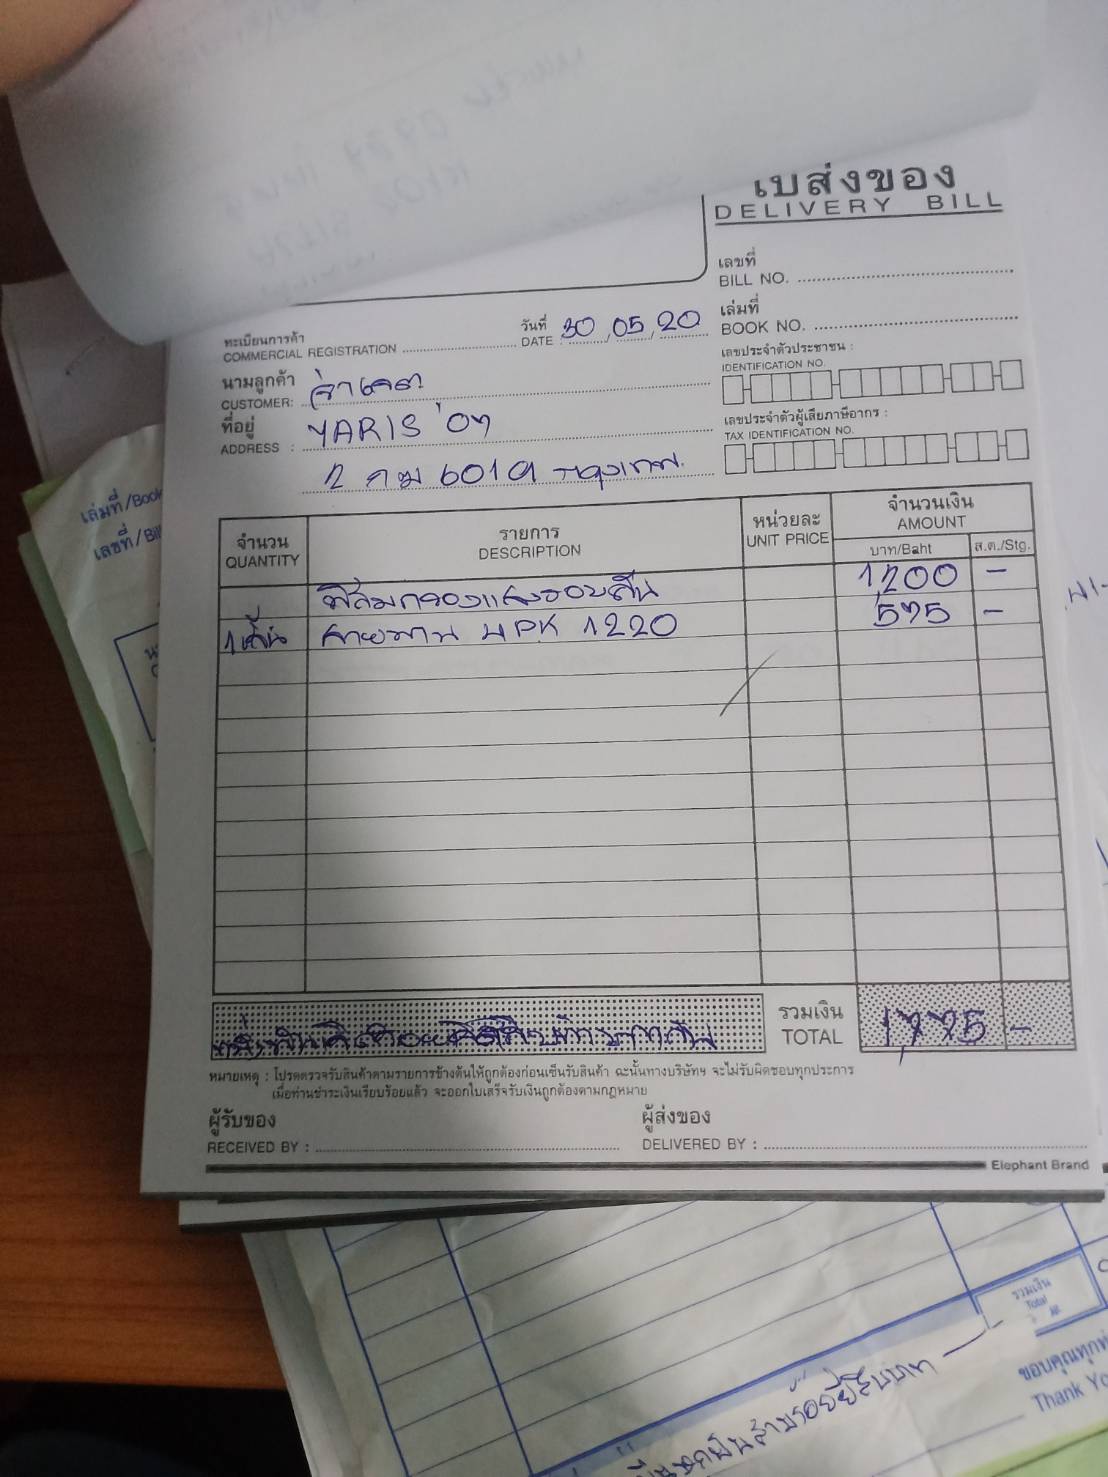 ใบส่งของ
DELIVERY BILL
เลขที่
BILL NO.
เล่มที่
BOOK NO.
ทะเบียนการค้า
COMMERCIAL REGISTRATION
วันที่
DATE : 30, 05, 20
เลขประจำตัวประชาชน :
IDENTIFICATION NO.
นามลูกค้า
CUSTOMER:
ที่อยู่ YARIS '07
ADDRESS :
เลขประจำตัวผู้เสียภาษีอากร :
TAX IDENTIFICATION NO.
2 กฆ 6019 กรุงเทพ.
จำนวน
QUANTITY
รายการ
DESCRIPTION
หน่วยละ
UNIT PRICE
จำนวนเงิน
AMOUNT
บาท/Baht ส.ต./Stg.
ฟิล์มกรองแสงรอบคัน 1,200 -
1 เส้น สายพาน 4PK 1220 575 -
หนึ่งพันเจ็ดร้อยเจ็ดสิบห้าบาทถ้วน
รวมเงิน
TOTAL 1,775 -
หมายเหตุ : โปรดตรวจรับสินค้าตามรายการข้างต้นให้ถูกต้องก่อนเซ็นรับสินค้า ฉะนั้นทางบริษัทฯ จะไม่รับผิดชอบทุกประการ
เมื่อท่านชำระเงินเรียบร้อยแล้ว จะออกใบเสร็จรับเงินถูกต้องตามกฎหมาย
ผู้รับของ
RECEIVED BY :
ผู้ส่งของ
DELIVERED BY :
Elephant Brand
เล่มที่/Book
เลขที่/Bill
รวมเงิน
Total
ขอบคุณทุกท่
Thank Yo